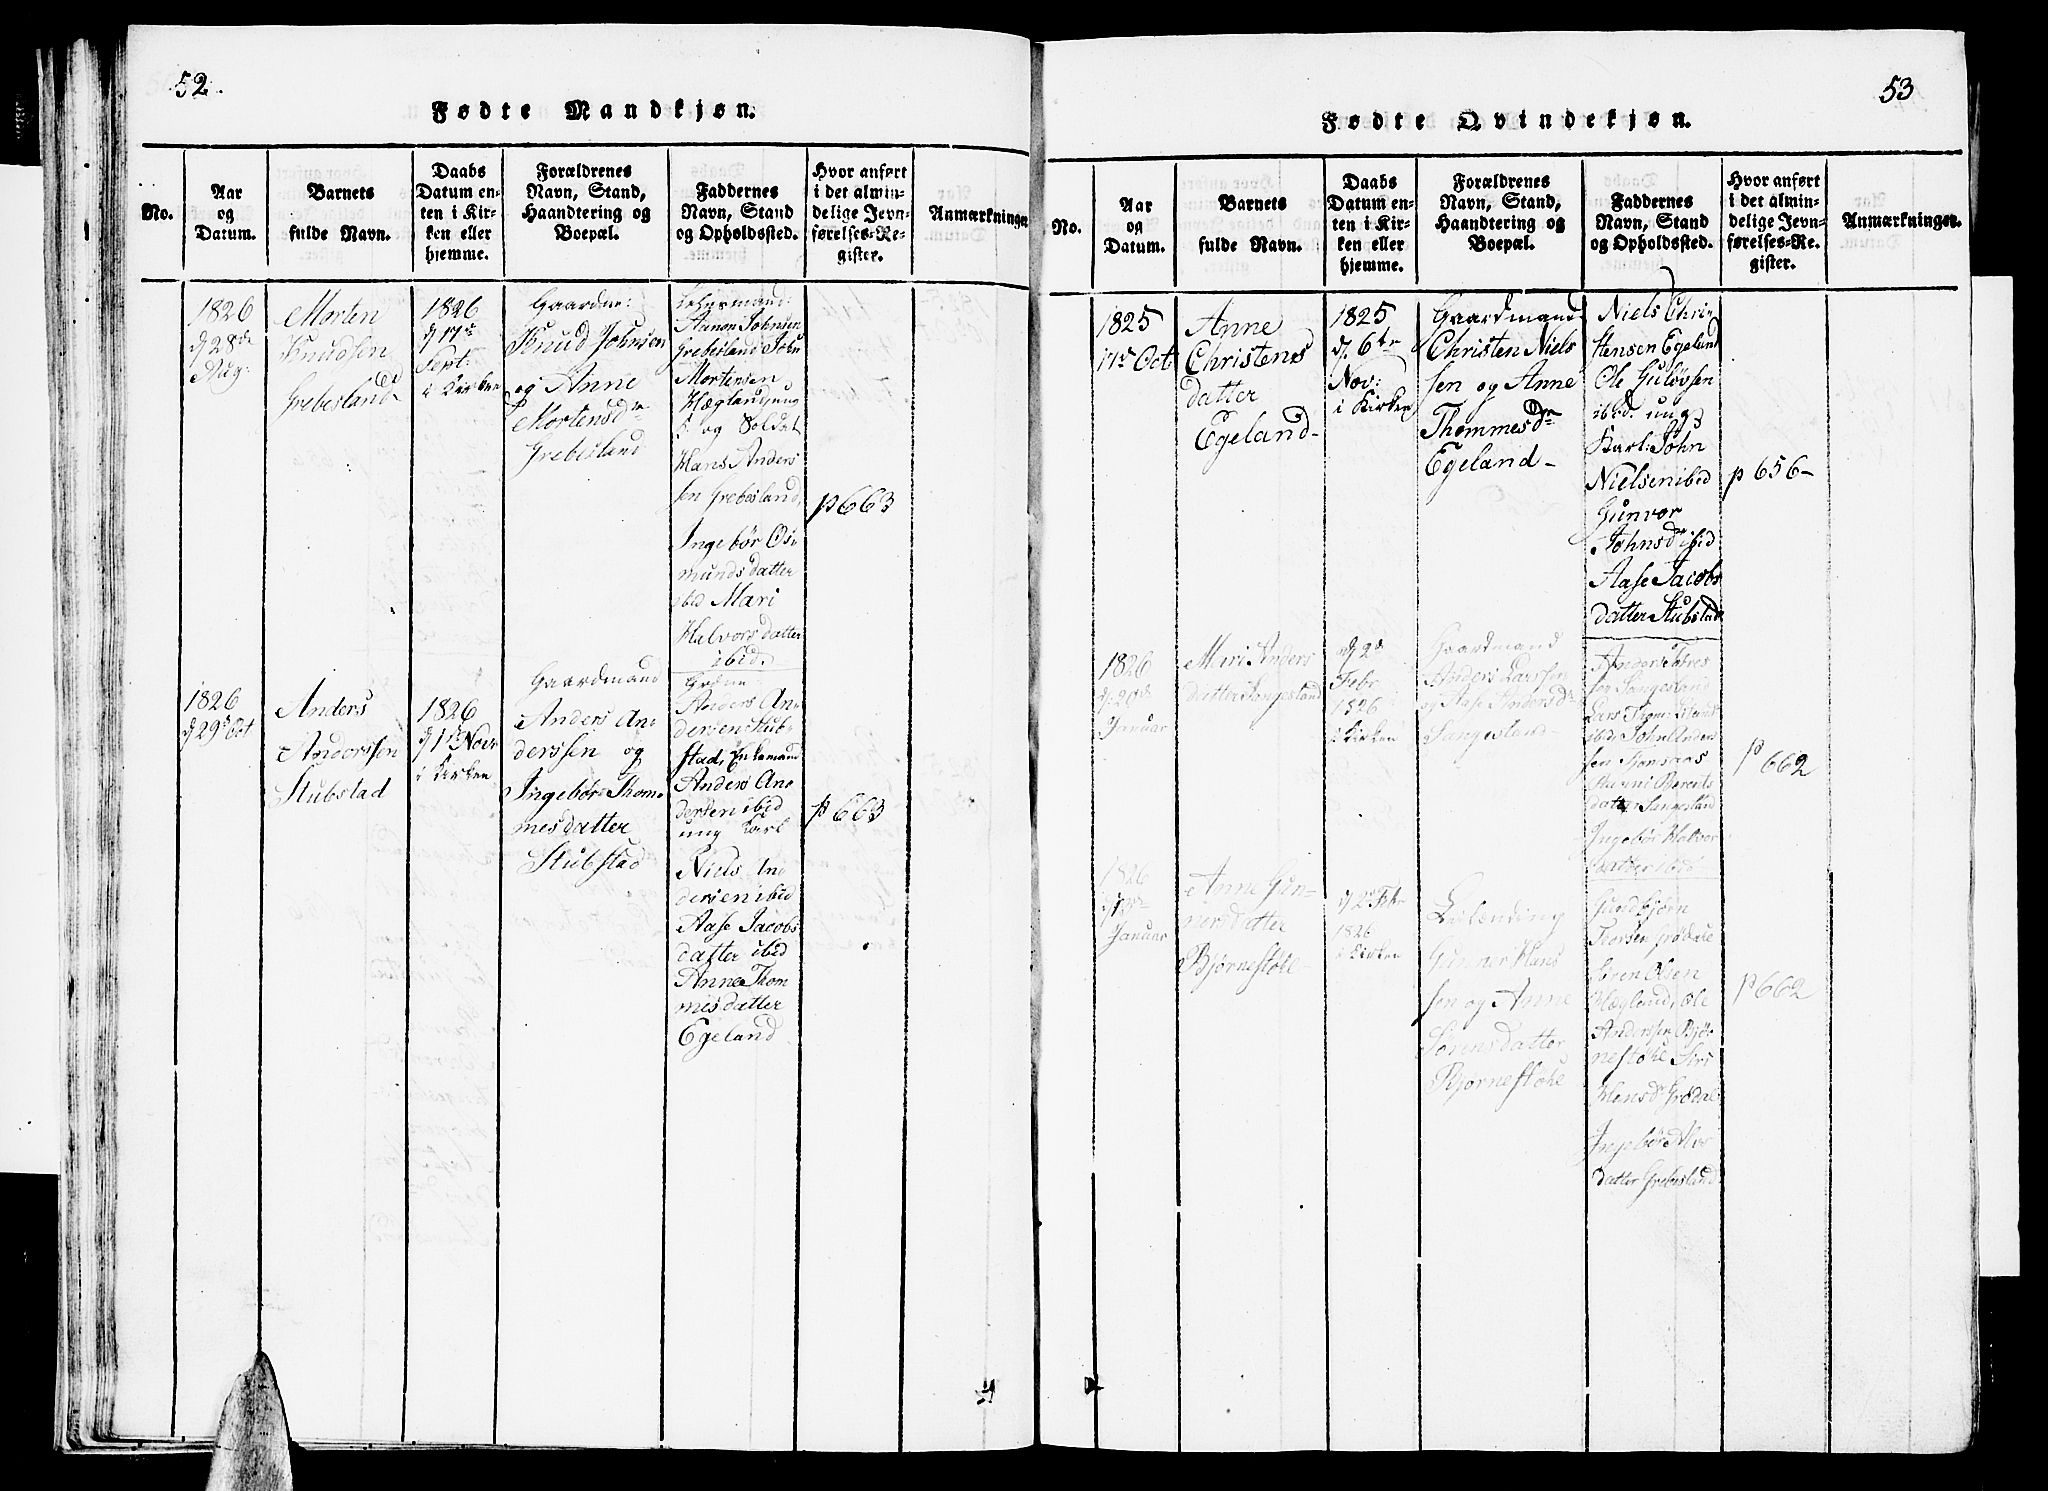 52.
Fødte Mandkjøn.
No.
Aar
og
Datum.
Barnets
fulde Navn.
Daabs
Datum en-
ten i Kir-
ken eller
hjemme.
Forældrenes
Navn, Stand,
Haandtering og
Boepæl.
Faddernes
Navn, Stand
og Opholdssted.
Hvor anført
i det almin-
delige Jevn-
førelses-Re-
gister.
Anmærkninger
1826
d 28de
Aug:
Morten
Knudsen
Grebesland
1826
d 17de
Sept:
i Kirken
Gaardm:
Knud Johnsen
og Anne
Mortensdr
Grebesland
Aanon Johnsen
Grebesland John
Mortensen
Hægland ung
K. og Soldat
Hans Anders
sen Grebesland,
Ingebør Os-
munds datter
ibid Mari
Halvors datter
ibid.
p 663
1826
d 29de Oct
Anders
Anderssen
Stubstad
1826
d 12te Novr
i Kirken
Gaardmand
Anders An-
derssen og
Ingebør Thom-
mesdatter
Stubstad
Anders An-
dersen Stub-
stad, Enkemand
Anders An-
dersen ibid
ung Karl
Niels An-
dersen ibid
Aase Jacobs
datter ibid
Anne Thom
mesdatter
Egeland
p 663
53
Fødte Qvindekjøn.
No.
Aar
og
Datum.
Barnets
fulde Navn.
Daabs
Datum en-
ten i Kir-
ken eller
hjemme.
Forældrenes
Navn, Stand,
Haandtering og
Boepæl.
Faddernes
Navn, Stand
og Opholdssted.
Hvor anført
i det almin-
delige Jevn-
førelses-Re-
gister.
Anmærkninger.
1825
17de Oct
Anne
Christens
datter
Egeland-
1825
d. 6te
Nov:
i Kirken
Gaardmand
Christen Niels
sen og Anne
Thommesdr
Egeland-
Niels Chri-
stensen Egeland
Ole Guløvsen
ibid. ung
Karl: John
Nielsen ibid
Gunvor
Johnsdr ibid
Aase Jacobs
datter Stubstad
p 656-
1826
d. 20de
Januar
Mari Anders
datter Sangesland
d 2de
Febr
1826
i Kirken
Gaardmand
Anders Larssen
og Aase Andersdr
Sangesland-
Anders Tores
sen Sangesland
Lars Thom:
ibid John Anders
sen
Berents
datter Sangesland
Ingebør Halvor
datter ibid
p 662
1826
Januar
Anne Gun-
nersdatter
Bjørnestøle-
d 2de Febr
1826
i Kirken
Gunner Hans
sen og Anne
Sørensdatter
Bjørnestøle
Gundbjørn
Torsen Grødale
Søren Olsen
Hægland, Ole
Anderssen Bjør-
nestøle Siri
Hansdr Grødal
Ingebør
datter Grebesland
p 662